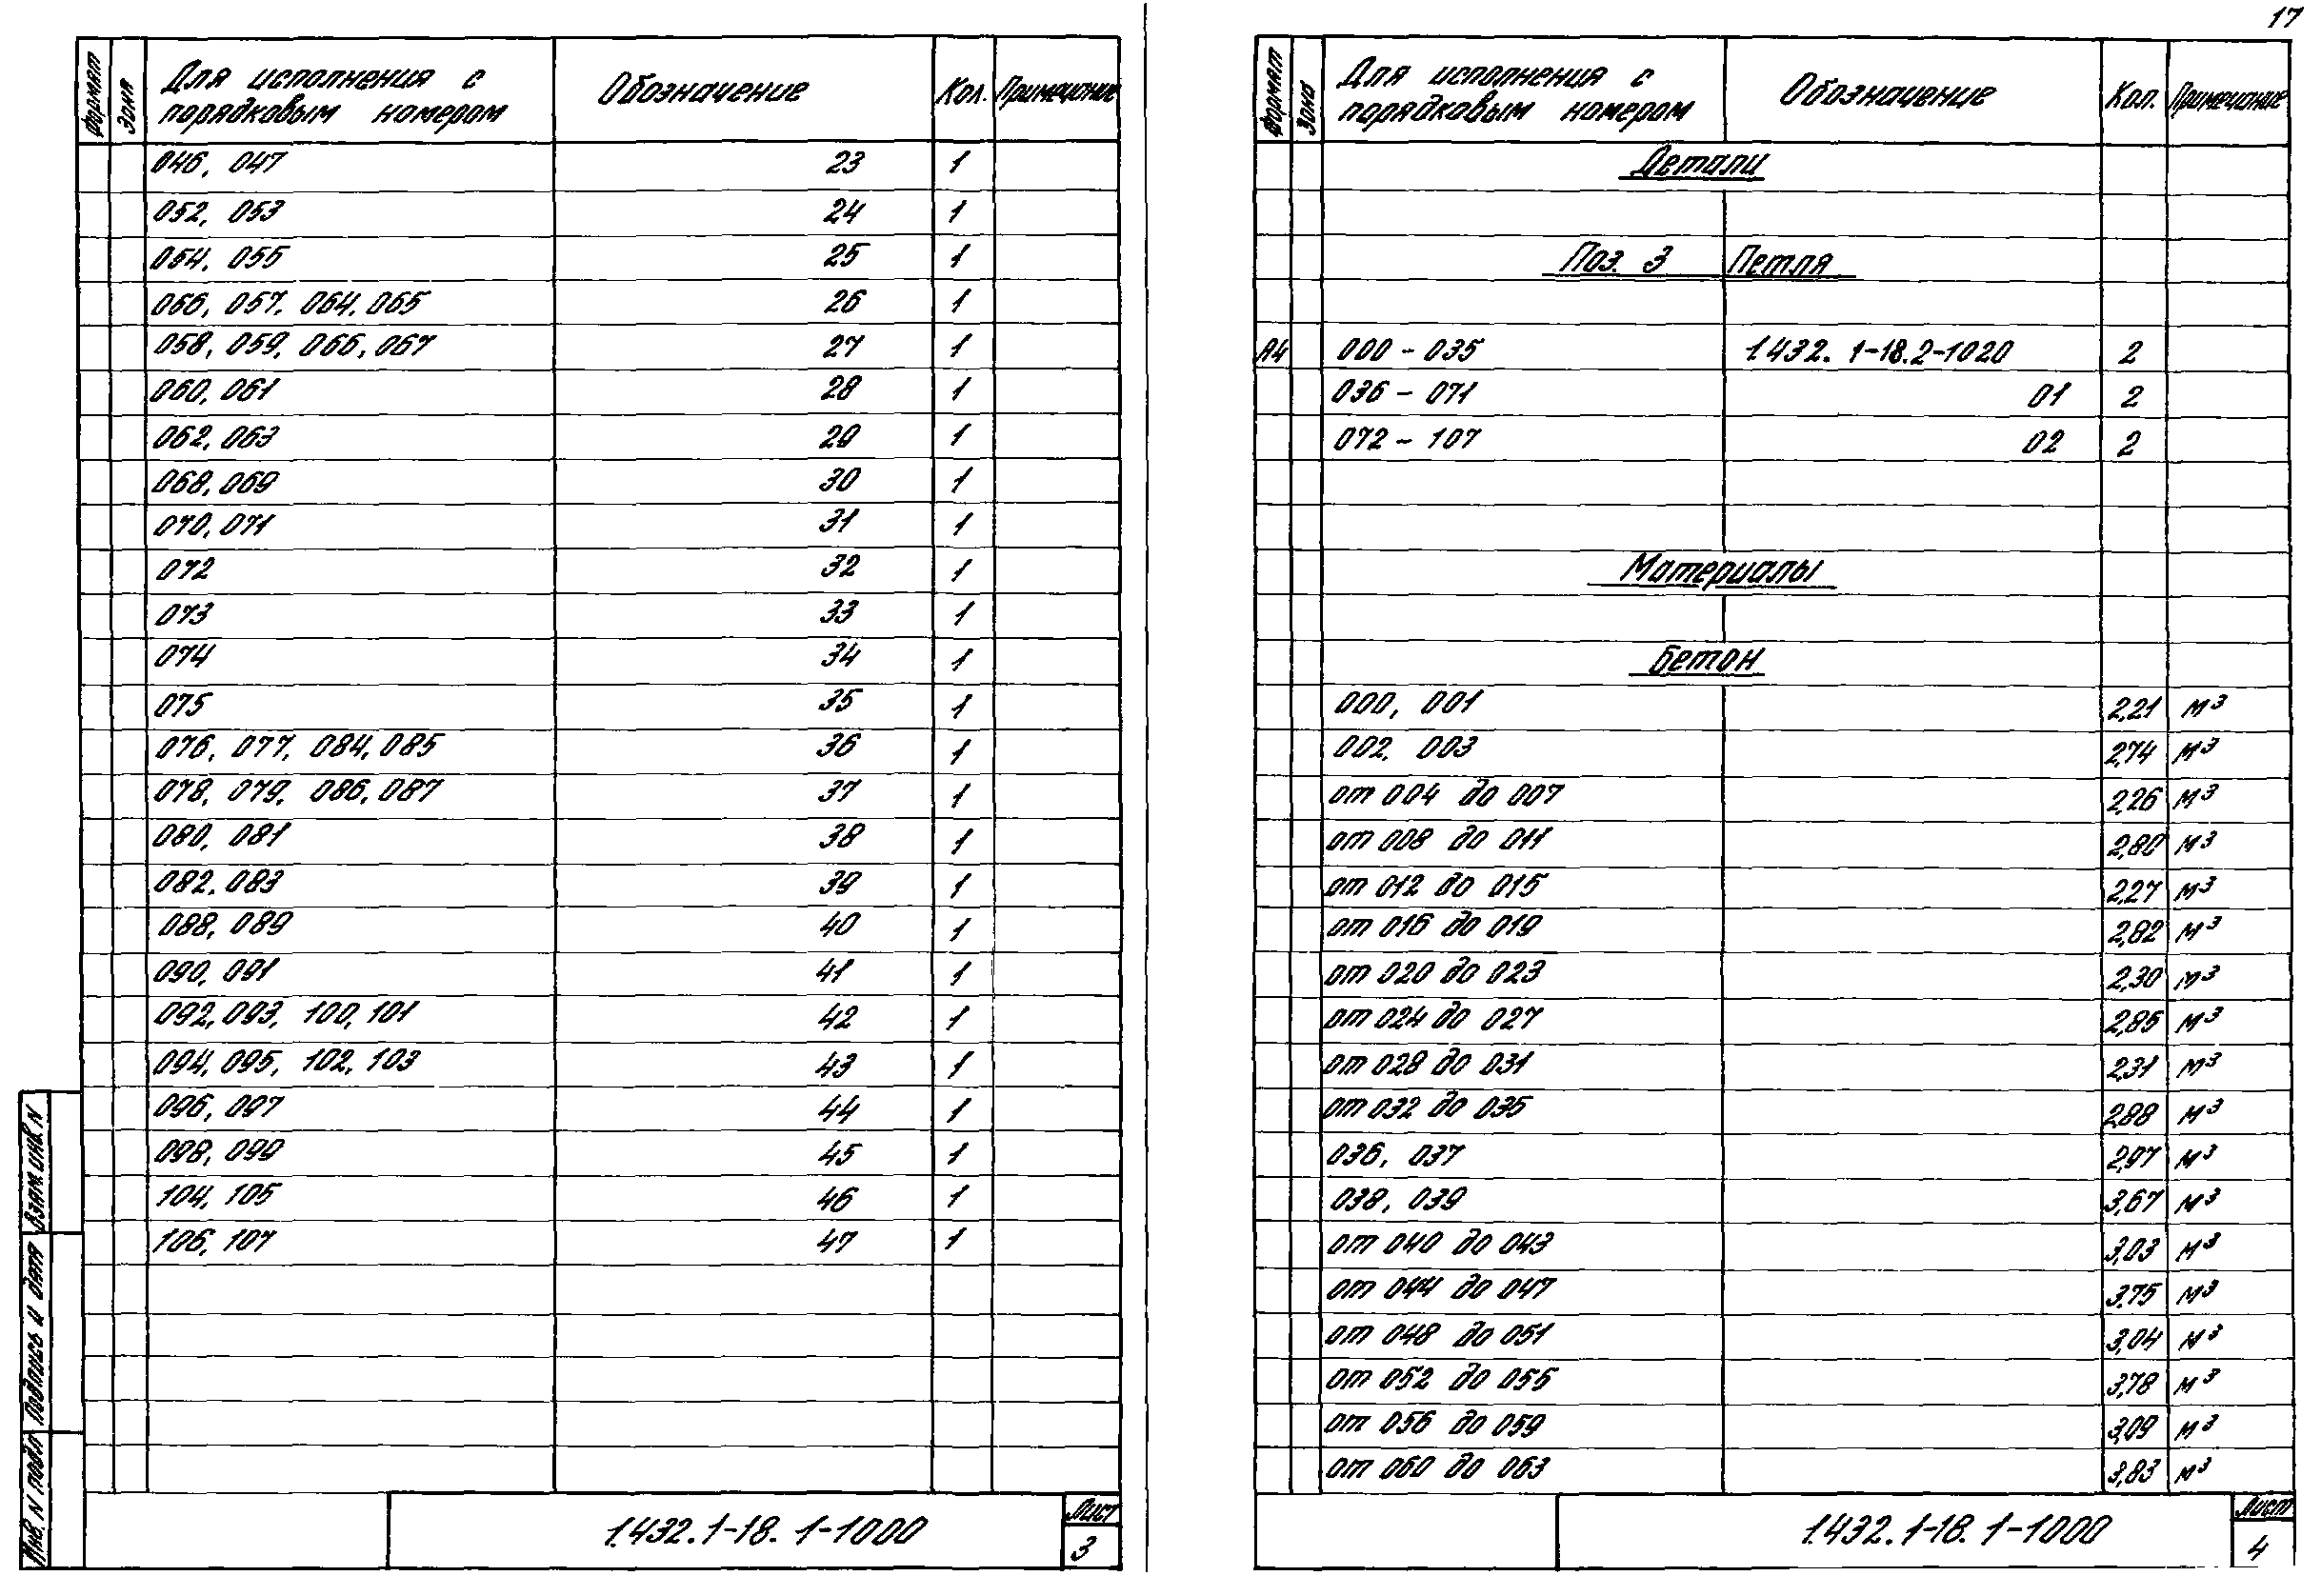 17
Формат Зона Для исполнения с порядковым номером Обозначение Кол. Примечание
046, 047 23 1
052, 053 24 1
054, 055 25 1
056, 057, 064, 065 26 1
058, 059, 066, 067 27 1
060, 061 28 1
062, 063 29 1
068, 069 30 1
070, 071 31 1
072 32 1
073 33 1
074 34 1
075 35 1
076, 077, 084, 085 36 1
078, 079, 086, 087 37 1
080, 081 38 1
082, 083 39 1
088, 089 40 1
090, 091 41 1
092, 093, 100, 101 42 1
094, 095, 102, 103 43 1
096, 097 44 1
098, 099 45 1
104, 105 46 1
106, 107 47 1
Взам. инв. N
Подпись и дата
Инв. N подл
1.432.1-18.1-1000
Лист
3
Формат Зона Для исполнения с порядковым номером Обозначение Кол. Примечание
Детали
Поз. 3 Петля
А4 000 - 035 1.432.1-18.2-1020 2
036 - 071 01 2
072 - 107 02 2
Материалы
Бетон
000, 001 2,21 м³
002, 003 2,74 м³
от 004 до 007 2,26 м³
от 008 до 011 2,80 м³
от 012 до 015 2,27 м³
от 016 до 019 2,82 м³
от 020 до 023 2,30 м³
от 024 до 027 2,85 м³
от 028 до 031 2,31 м³
от 032 до 035 2,88 м³
036, 037 2,97 м³
038, 039 3,67 м³
от 040 до 043 3,03 м³
от 044 до 047 3,75 м³
от 048 до 051 3,04 м³
от 052 до 055 3,78 м³
от 056 до 059 3,09 м³
от 060 до 063 3,83 м³
1.432.1-18.1-1000
Лист
4